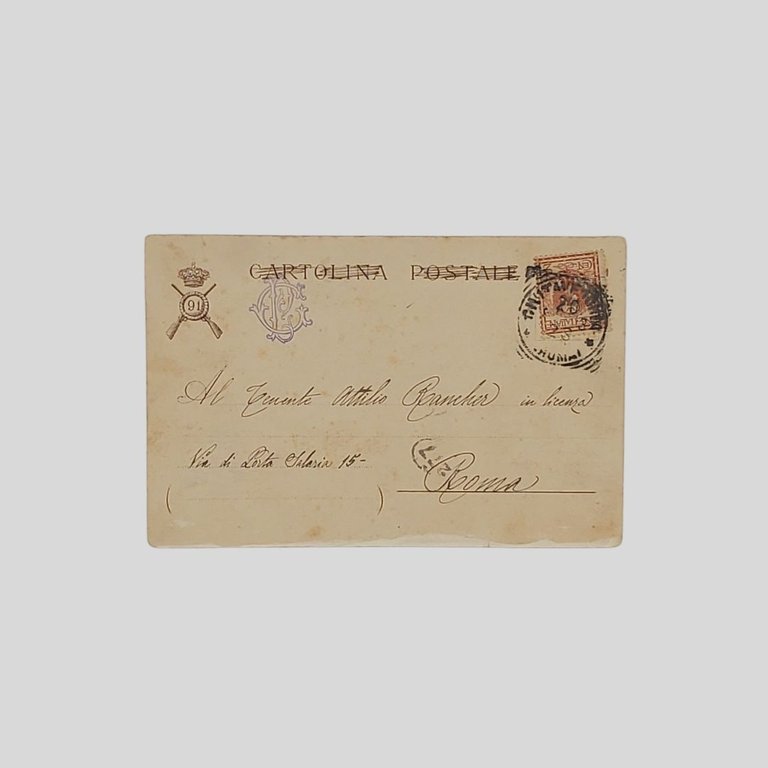 CARTOLINA POSTALE
91
Al Tenente Attilio Rancher in licenza
Via di Porta Salaria 15-
Roma
(ROMA)